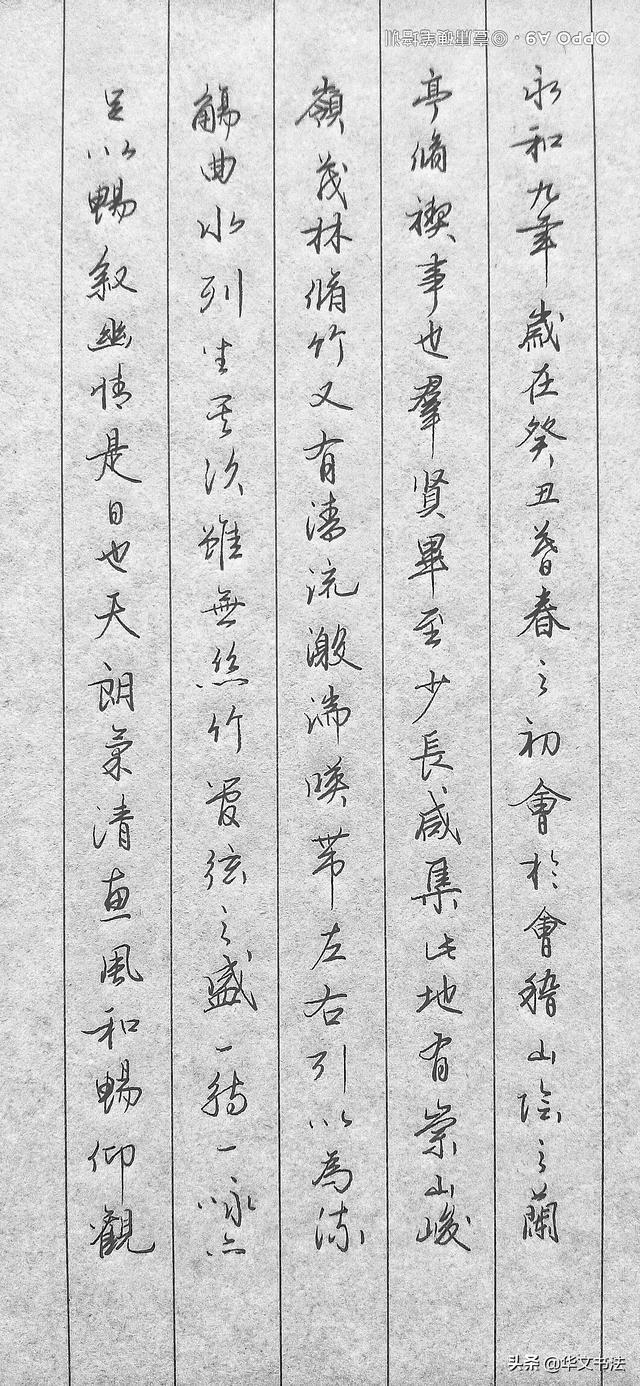 永和九年歲在癸丑暮春之初會於會稽山陰之蘭
亭脩禊事也羣賢畢至少長咸集此地有崇山峻
嶺茂林脩竹又有清流激湍暎帶左右引以為流
觴曲水列坐其次雖無絲竹管弦之盛一觴一詠亦
足以暢叙幽情是日也天朗氣清惠風和暢仰觀
OPPO A9 · ©
头条 @华文书法